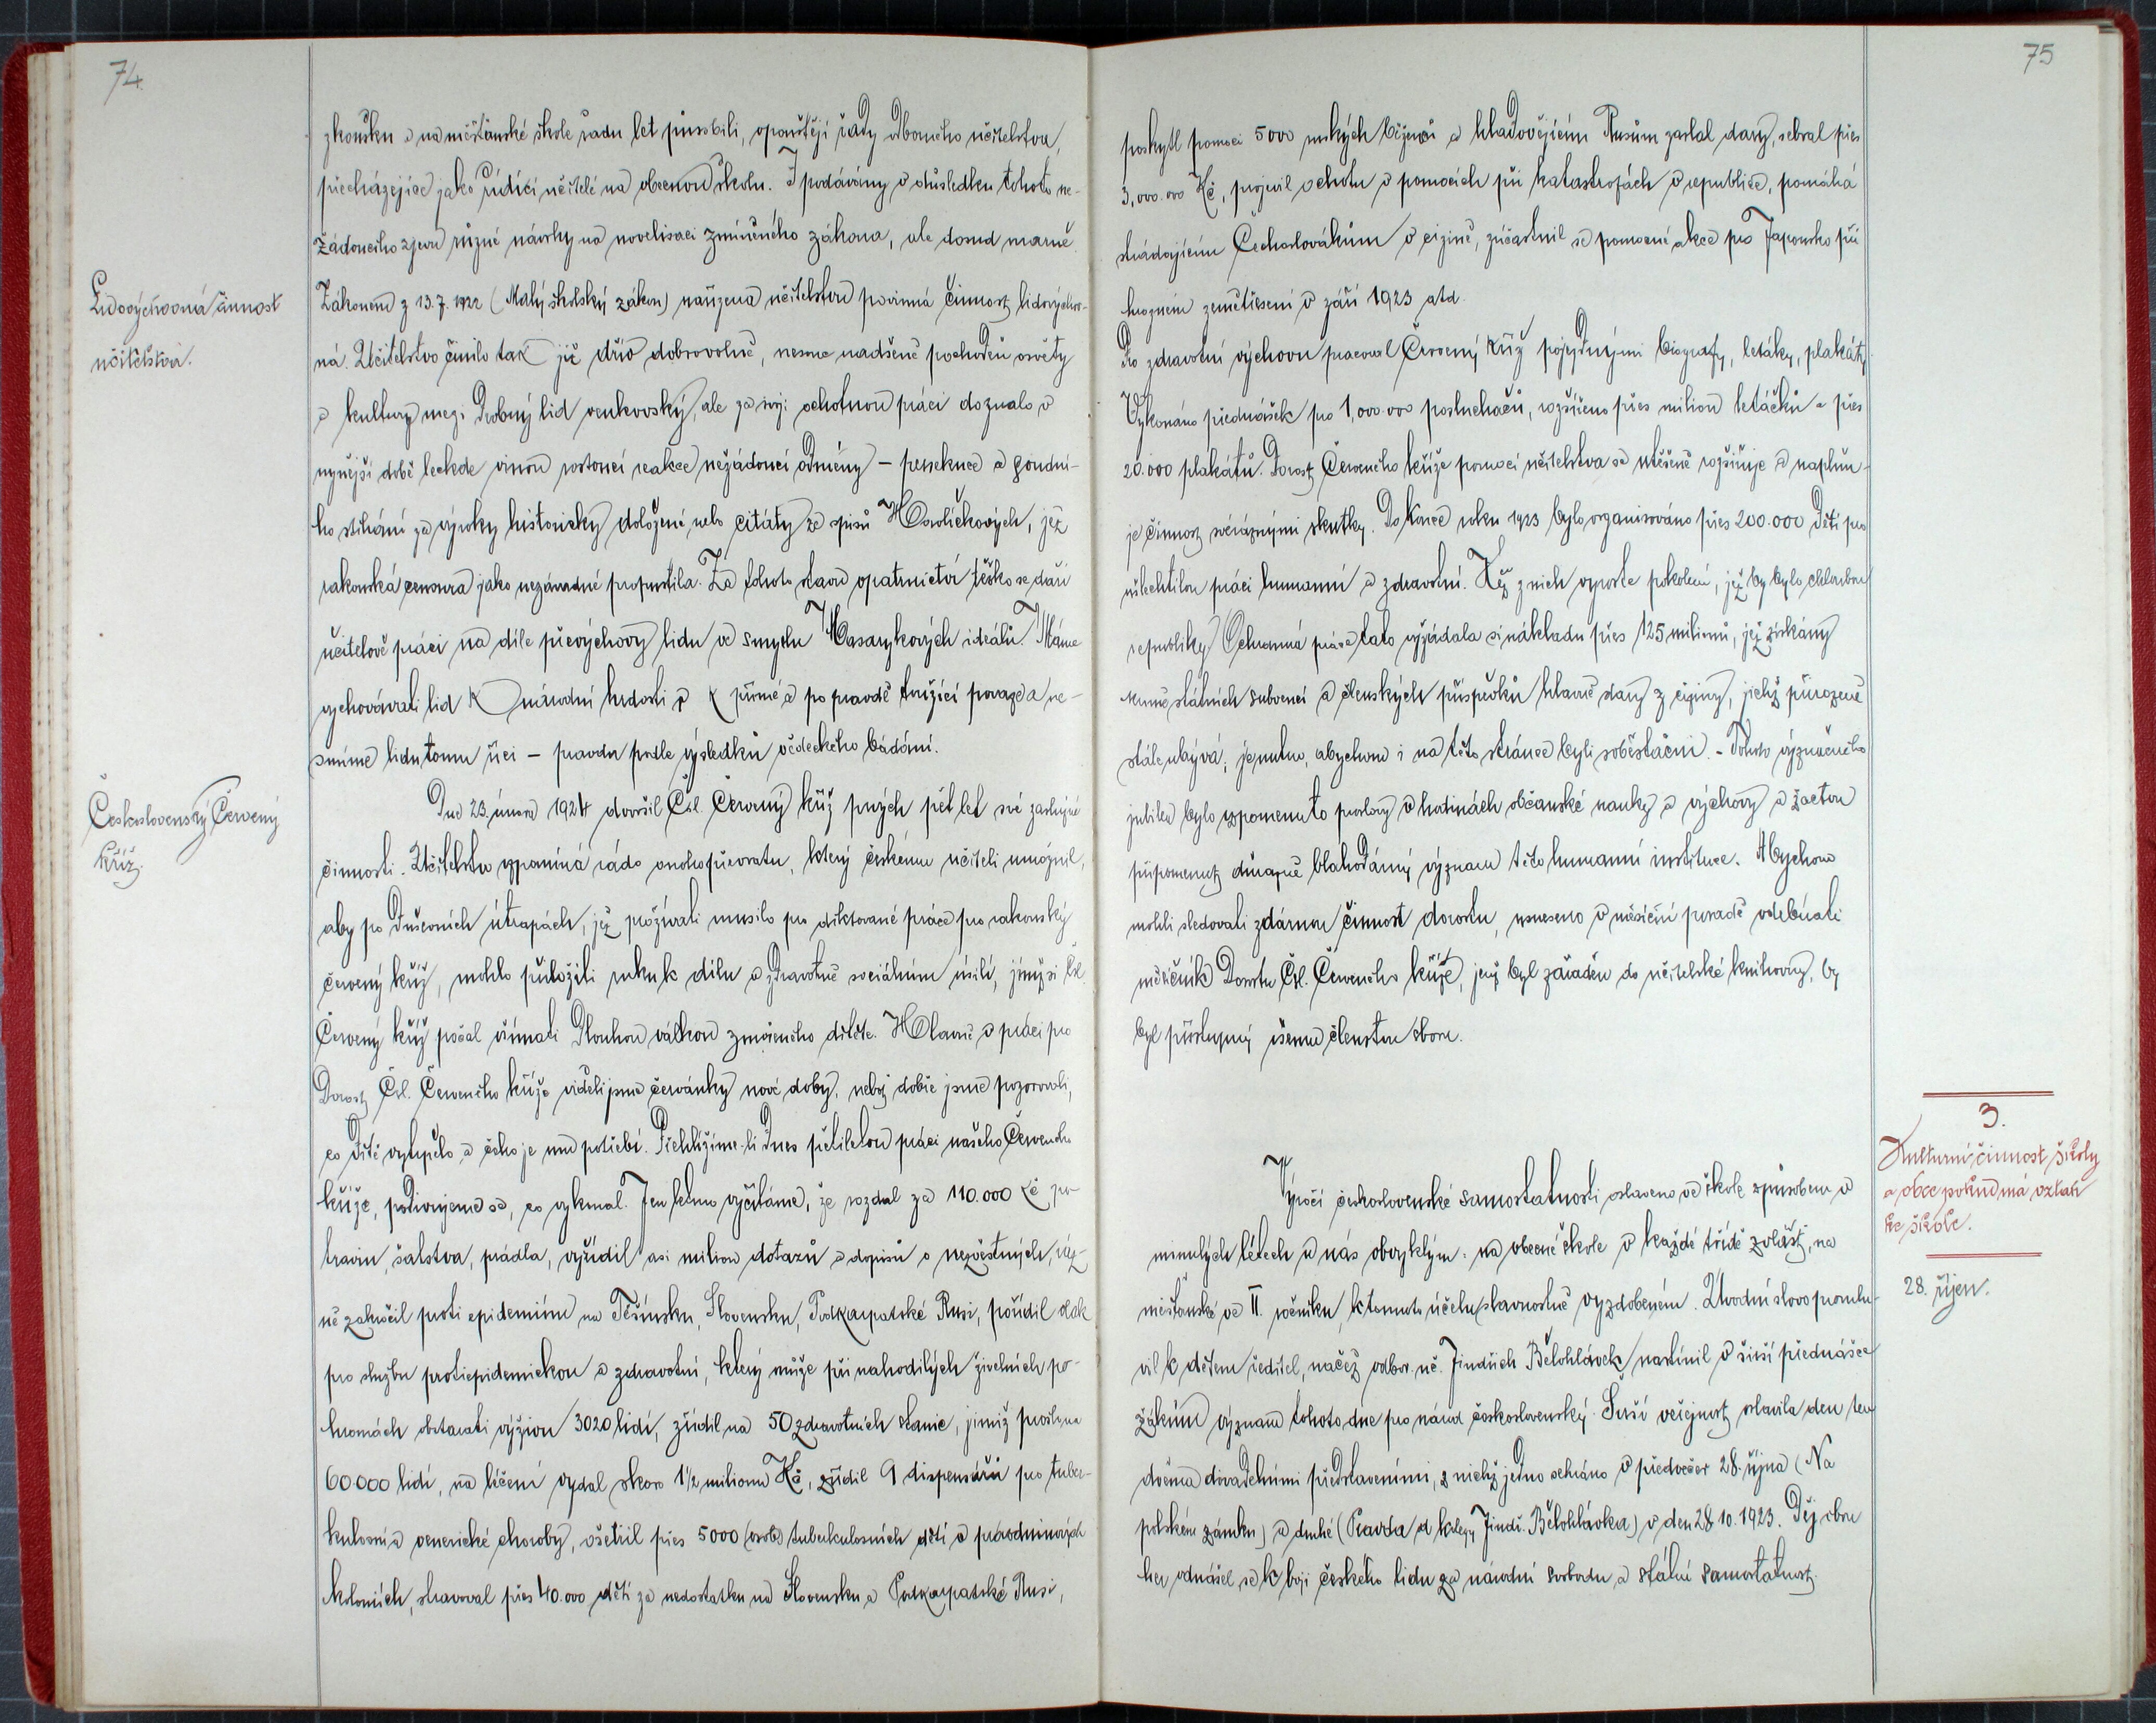 74.
zkoušku a na měšťanské škole řadu let působili, opouštějí řady odborného učitelstva,
přecházejíce jako řídící učitelé na obecnou školu. I podávány v důsledku tohoto ne-
žádoucího zjevu různé návrhy na novelisaci zmíněného zákona, ale dosud marně.
Lidovýchovná činnost
učitelstva.
Zákonem z 13.7.1922 (Malý školský zákon) nařízena učitelstvu povinná činnost lidovýchov-
ná. Učitelstvo činilo tak již dřív dobrovolně, nesouc nadšeně pochodeň osvěty
a kultury mezi drobný lid venkovský, ale za svoji ochotnou práci doznalo v
nynější době leckde vinou rostoucí reakce nežádoucí odměny – persekuce a soudní-
ho stíhání za výroky historicky doložené nebo citáty ze spisů Havlíčkových, jež
rakouská censura jako nezávadné propustila. Za tohoto stavu opatrnictví těžko se daří
učitelově práci na díle převýchovy lidu ve smyslu Masarykových ideálů. Máme
vychovávati lid k národní hrdosti a k přímé a po pravdě toužící povaze a ne-
smíme lidu tomu říci – pravdu podle výsledků vědeckého bádání.
Československý Červený
kříž.
Dne 23. února 1924 dovršil Čsl. Červený kříž prvých pět let své záslužné
činnosti. Učitelstvo vzpomíná rádo onoho převratu, který českému učiteli umožnil,
aby po duševních útrapách, jež prožívati musilo pro diktované práce pro rakouský
červený kříž, mohlo přiložiti ruku k dílu a zdravotně sociálnímu úsilí, jímž si Čsl.
Červený kříž počal všímati dlouhou válkou zmořeného dítěte. Hlavně v práci pro
Dorost Čsl. Červeného kříže viděli jsme červánky nové doby, neboť dobře jsme pozorovali,
co dítě vytrpělo a čeho je mu potřebí. Přehlížíme-li dnes pětiletou práci našeho Červeného
kříže, podivujeme se, co vykonal. Jen letmo vyčítáme, že rozdal za 110.000 Kč po-
travin, šatstva, prádla, vyřídil asi milion dotazů a dopisů o nezvěstných, ráz-
ně zakročil proti epidemiím na Těšínsku, Slovensku, Podkarpatské Rusi, pořídil vlak
pro službu protiepidemickou a zdravotní, který může při nahodilých živelních po-
hromách obstarati výživu 3020 lidí, zřídil na 50 zdravotních stanic, jimiž prošlo na
60.000 lidí, na léčení vydal skoro 1 1/2 milionu Kč, zřídil 9 dispensářů pro tuber-
kulosní a venerické choroby, ošetřil přes 5000 (osob) tuberkulosních dětí a prázdninových
koloniích, stravoval přes 40.000 dětí za nedostatku na Slovensku a Podkarpatské Rusi,
75
poskytl pomoci 5000 ruských běženců a hladovějícím Rusům zaslal dary, sebral přes
3,000.000 Kč, projevil ochotu v pomocích při katastrofách v republice, pomáhá
strádajícím Čechoslovákům v cizině, zúčastnil se pomocné akce pro Japonsko při
hrozném zemětřesení v září 1923 atd.
Po zdravotní výchovu pracoval Červený kříž pojízdnými biografy, letáky, plakáty.
Vykonáno přednášek pro 1,000.000 posluchačů, rozšířeno přes milion letáčků a přes
20.000 plakátů. Dorost Červeného kříže pomocí učitelstva se utěšeně rozšiřuje a naplňu-
je činnost svéráznými skutky. Do konce roku 1923 bylo organisováno přes 200.000 dětí pro
ušlechtilou práci humanní a zdravotní. Kéž z nich vyroste pokolení, jež by bylo chloubou
republiky! Ochranná práce tato vyžádala si nákladu přes 125 milionů, jež získány
kromě státních subvencí a členských příspěvků hlavně dary z ciziny, jichž přirozeně
stále ubývá; je nutno, abychom i na této stránce byli soběstační. – Tohoto význačného
jubilea bylo vzpomenuto proslovy v hodinách občanské nauky a výchovy a žactvu
připomenut důrazně blahodárný význam této humanní instituce. Abychom
mohli sledovati zdárnou činnost dorostu, usneseno v měsíční poradě odebírati
měsíčník Dorostu Čsl. Červeného kříže, jenž byl zařaděn do učitelské knihovny, by
byl přístupný všemu členstvu sboru.
3.
Kulturní činnost školy
a obce pokud má vztah
ke škole.
28. říjen.
Výročí československé samostatnosti oslaveno ve škole způsobem v
minulých létech u nás obvyklým: na obecné škole v každé třídě zvlášť, na
měšťanské ve II. ročníku, k tomuto účelu slavnostně vyzdobeném. Úvodní slovo promlu-
vil k dětem ředitel, načež odbor. uč. Jindřich Bělohlávek nastínil v širší přednášce
žákům význam tohoto dne pro národ československý. Širší veřejnost oslavila den ten
dvěma divadelními představeními, z nichž jedno sehráno v předvečer 28. října (Na
polském zámku) a druhé (Pravda od kolegy Jindř. Bělohlávka) v den 28.10.1923. Děj obou
her odnášel se k boji českého lidu za národní svobodu a státní samostatnost.